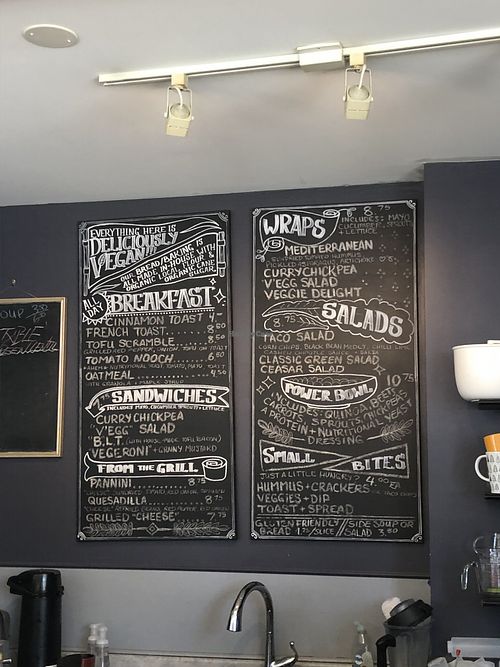 EVERYTHING HERE IS
DELICIOUSLY
VEGAN!!!
OUR BREAD/BAKING IS
ALL MADE IN HOUSE WITH
ORGANIC LOCAL FLOUR &
ORGANIC CANE
SUGAR
ALL DAY BREAKFAST
CINNAMON TOAST 4
FRENCH TOAST 8.50
TOFU SCRAMBLE 8.50
TOMATO NOOCH 6.50
OATMEAL 4.50
WITH GRANOLA + MAPLE SYRUP
SANDWICHES
INCLUDES MAYO, CUCUMBER, SPROUTS + LETTUCE
CURRY CHICKPEA
"V'EGG" SALAD
"B.L.T." (WITH HOUSE-MADE TOFU BACON)
VEGERONI + GRAINY MUSTARD
FROM THE GRILL
PANNINI 8.75
QUESADILLA 8.75
GRILLED "CHEESE" 7.75
WRAPS 8.75
INCLUDES: MAYO
CUCUMBER, SPROUTS
+ LETTUCE
MEDITERRANEAN
CURRY CHICKPEA
V'EGG SALAD
VEGGIE DELIGHT
8.75 SALADS
TACO SALAD
CLASSIC GREEN SALAD
CEASAR SALAD
POWER BOWL 10.75
INCLUDES: QUINOA, BEETS,
CARROTS, SPROUTS, CHICKPEAS
& PROTEIN + NUTRITIONAL YEAST
DRESSING
SMALL BITES
JUST A LITTLE HUNGRY? 4.00 EA
HUMMUS + CRACKERS
VEGGIES + DIP
TOAST + SPREAD
GLUTEN FRIENDLY // SIDE SOUP OR
BREAD 1.75/SLICE // SALAD 3.50